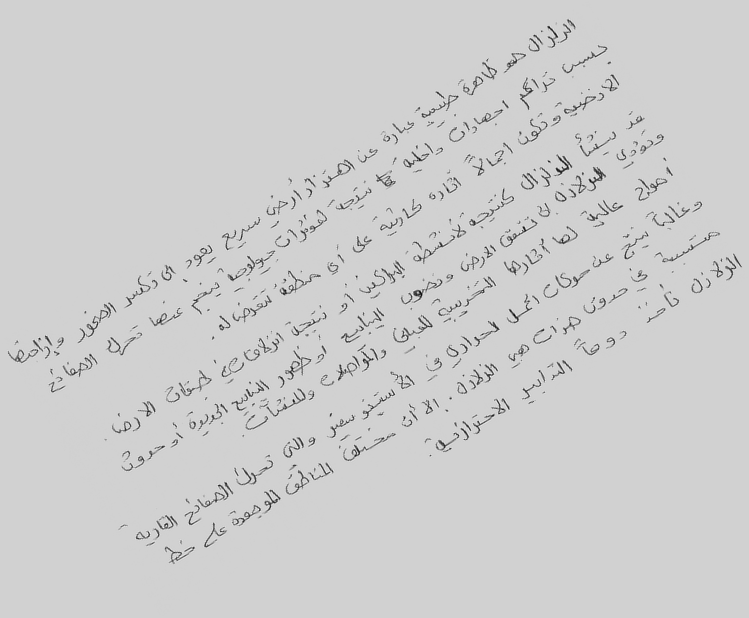 الزلزال هو ظاهرة طبيعية عبارة عن اهتزاز أرضي سريع يعود الى تكسر الصخور وإزاحتها
بسبب تراكم اجهادات داخلية نتيجة لمؤثرات جيولوجية ينجم عنها تحرك الصفائح
الارضية وتكون اجمالاً اثاره كارثية على أي منطقة تتعرض له.
قد ينشأ الزلزال كنتيجة لأنشطة البراكين أو نتيجة انزلاقات في طبقات الارض.
وتؤدي الزلازل الى تشقق الارض ونضوب الينابيع أو ظهور الينابيع الجديدة أو حدوث
أمواج عالية لها أثارها التخريبية للمباني والمواصلات وللمنشآت.
وغالباً ينتج عن حركات الحمل الحراري في الأستينوسفير والتي تحرك الصفائح القارية
متسببة في حدوث هزات هي الزلازل. الا أن مختلف المناطق الموجودة على خط
الزلازل تأخذ دوماً التدابير الاحترازية.